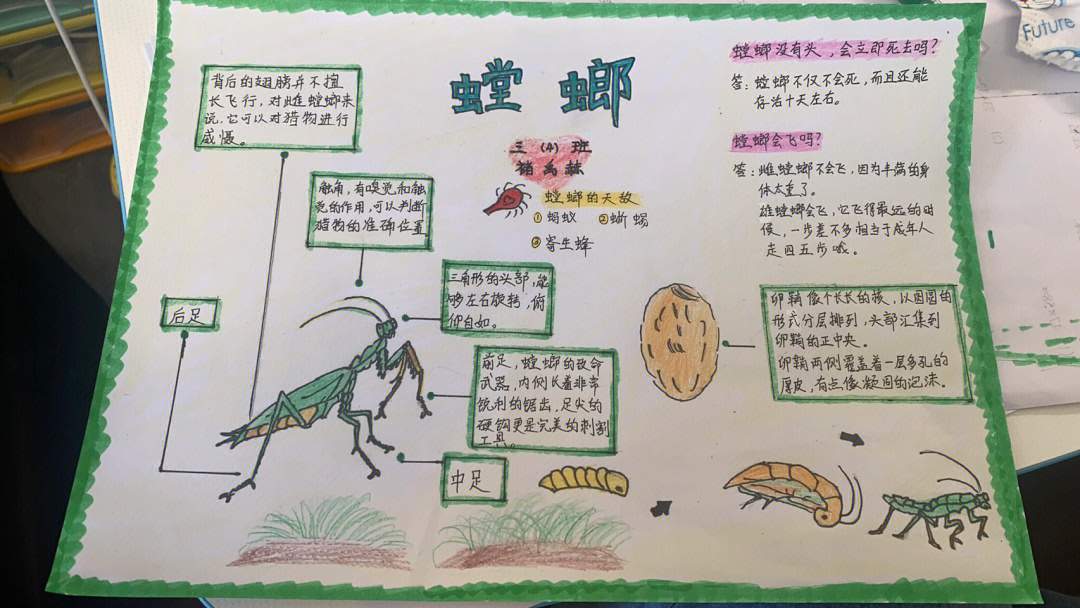 螳螂
三（4）班
螳螂的天敌
①蚂蚁 ②蜥蜴
③寄生蜂
背后的翅膀并不擅
长飞行，对雌螳螂来
说，它可以对猎物进行
威慑。
触角，有嗅觉和触
觉的作用，可以判断
猎物的准确位置
三角形的头部，能
够左右旋转，俯
仰自如。
后足
前足，螳螂的致命
武器，内侧长着非常
锐利的锯齿，足尖的
硬钩更是完美的刺割
工具。
中足
螳螂没有头，会立即死去吗？
答：螳螂不仅不会死，而且还能
存活十天左右。
螳螂会飞吗？
答：雌螳螂不会飞，因为丰满的身
体太重了。
雄螳螂会飞，它飞得最远的时
候，一步差不多相当于成年人
走四五步哦。
卵鞘像个长长的核，以圆圆的
形式分层排列，头部汇集到
卵鞘的正中央。
卵鞘两侧覆盖着一层多孔的
厚皮，有点像凝固的泡沫。
Future